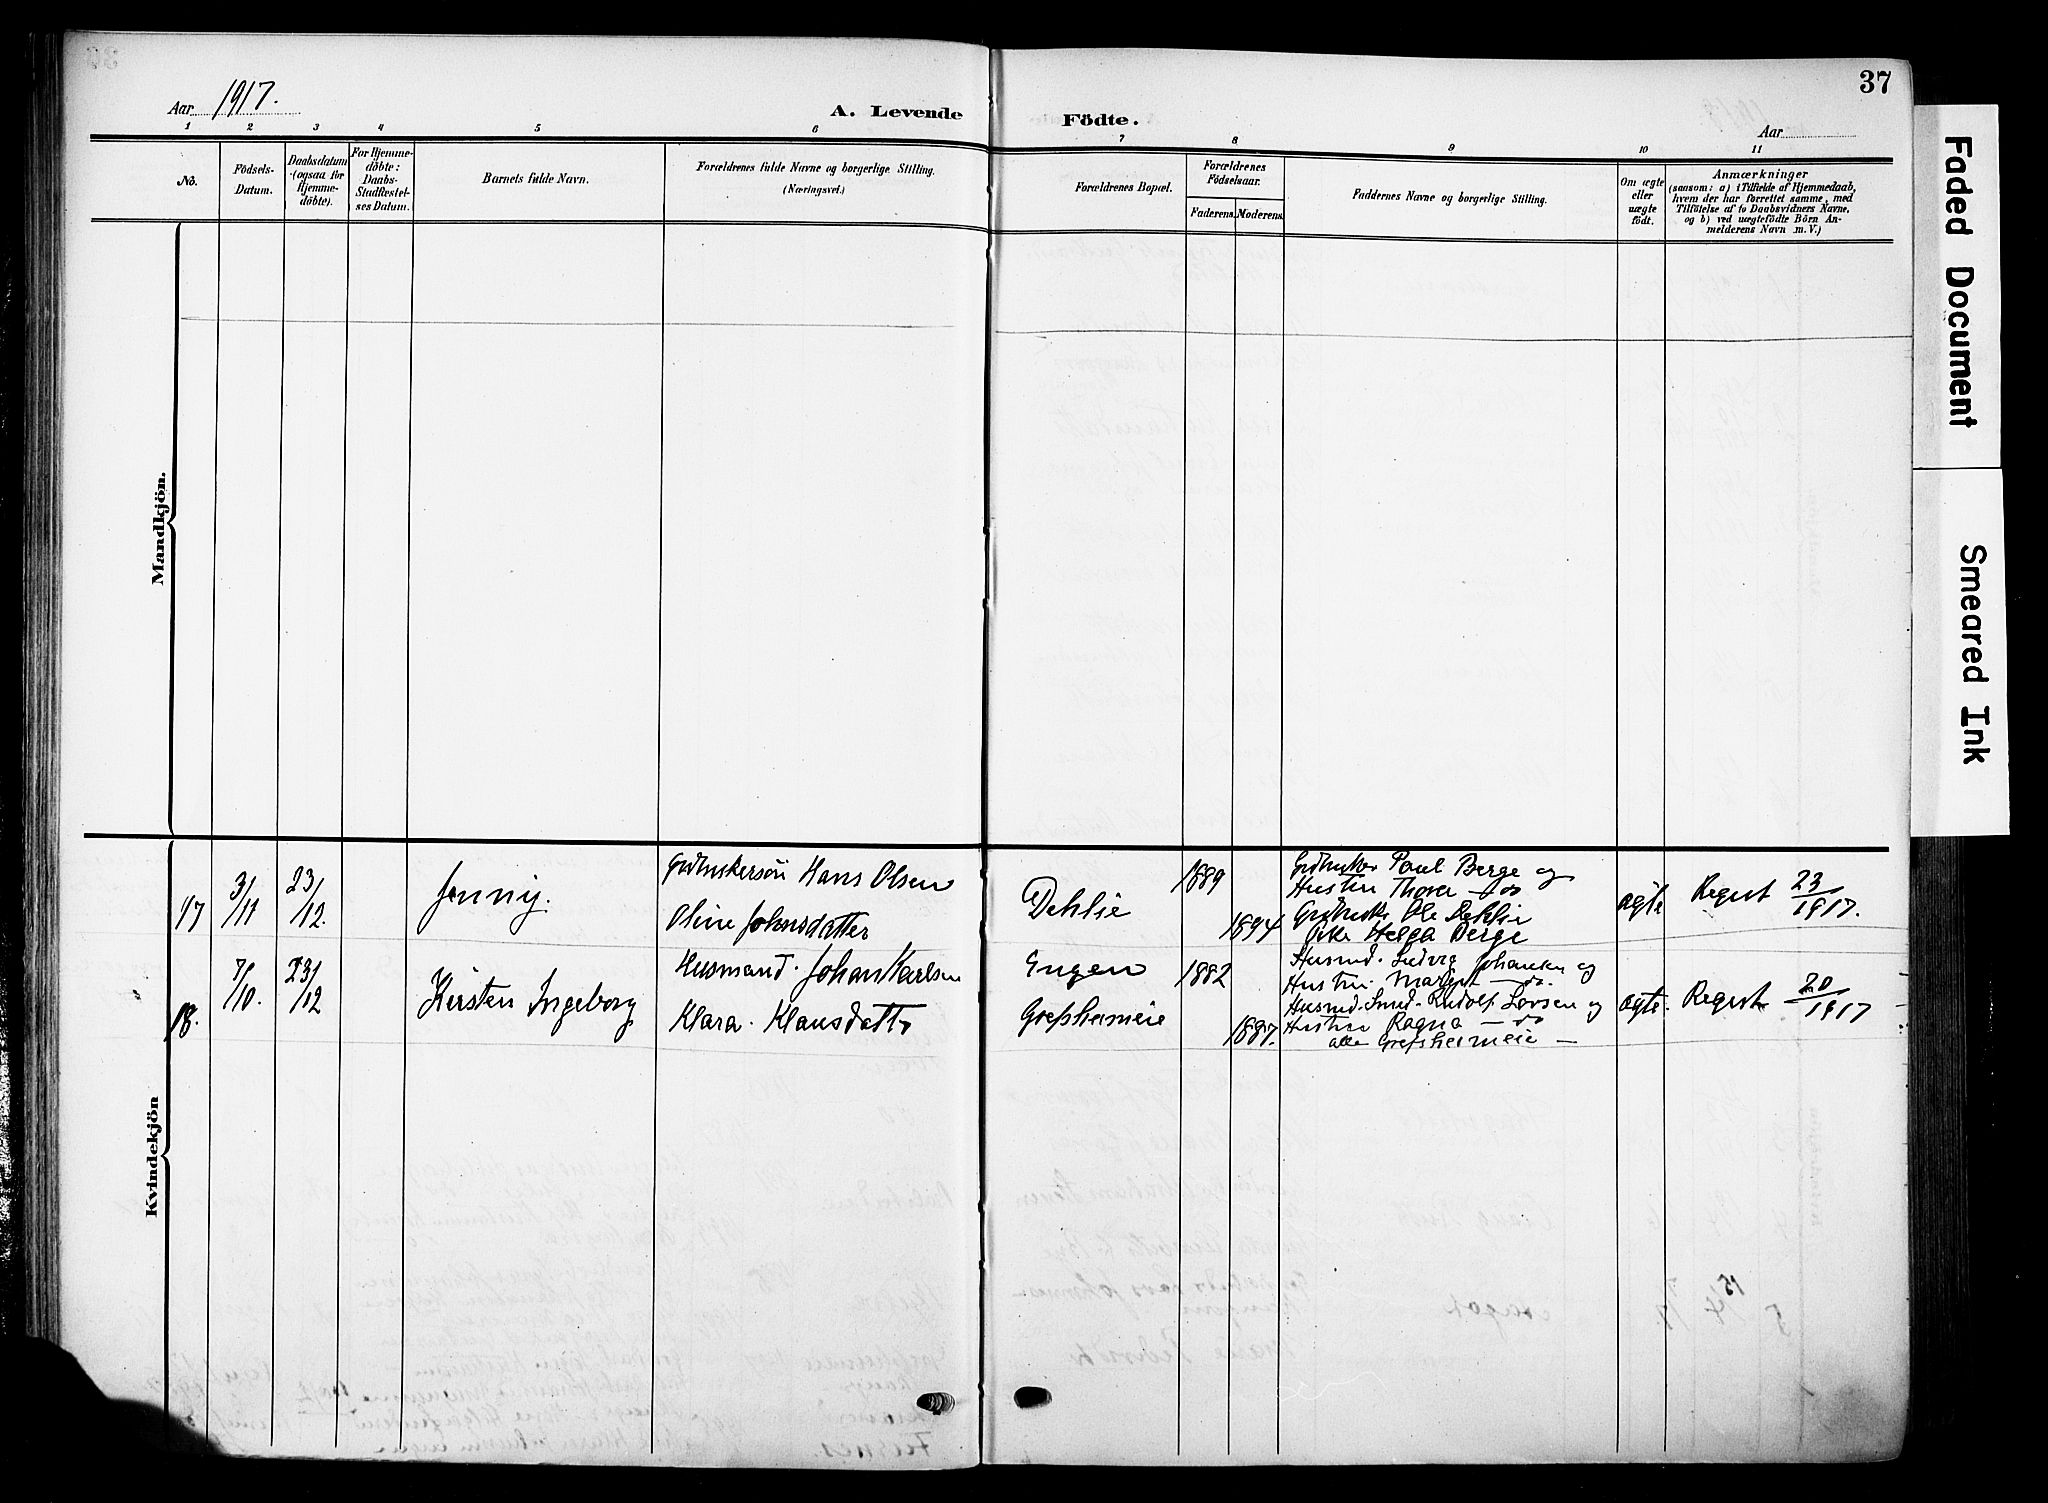 37
Aar 1917.
A. Levende Födte.
Aar
1 2 3 4 5 6 7 8 9 10 11
No.
Födsels-Datum.
Daabsdatum (ogsaa for Hjemme-döbte).
For Hjemme-döbte: Daabs-Stadfestel-ses Datum.
Barnets fulde Navn.
Forældrenes fulde Navne og borgerlige Stilling.
(Næringsvei.)
Forældrenes Bopæl.
Forældrenes Födselsaar.
Faderens. Moderens.
Faddernes Navne og borgerlige Stilling.
Om ægte eller uægte födt.
Anmærkninger
(saasom: a) i Tilfælde af Hjemmedaab,
hvem der har forrettet samme, med
Tilföielse af to Daabsvidners Navne,
og b) ved uægtefödte Börn An-
melderens Navn m. V.)
Mandkjön.
Kvindekjön
17 3/11 23/12. Jenny.
Grdbrukersön Hans Olsen
Oline Johnsdatter
Dehlie 1889
1894
Grdbruker Paul Berge og
Hustru Thora — do
Grdbruker Ole Dehlie
Pike Helga Berge
ægte Regist 23/1917.
18. 7/10. 23/12 Kirsten Ingeborg
Husmand. Johan Karlsen
Klara. Klausdatter
Engen
Grefsheimeie
1882
1887.
Husmd. Ludvig Johansen og
Hustru. Margit — do.
Husmd. Smed. Rudolf Larsen og
Hustru Ragna — do
alle Grefsheimeie —
ægte. Regist 20/1917
Faded Document
Smeared Ink